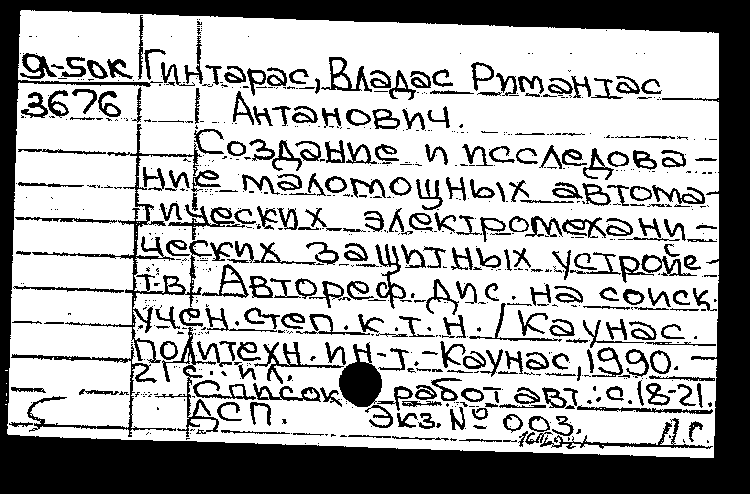 Я-50К Гинтарас, Владас Римантас
3676 Антанович.
Создание и исследова-
ние маломощных автома-
тических электромехани-
ческих защитных устройс-
тв. Автореф. дис. на соиск.
учен. степ. к.т.н. / Каунас.
политехн. ин-т.-Каунас, 1990. -
21 с.: ил.
Список работ авт.: с.18-21.
ДСП. Экз. № 003.
А.С.